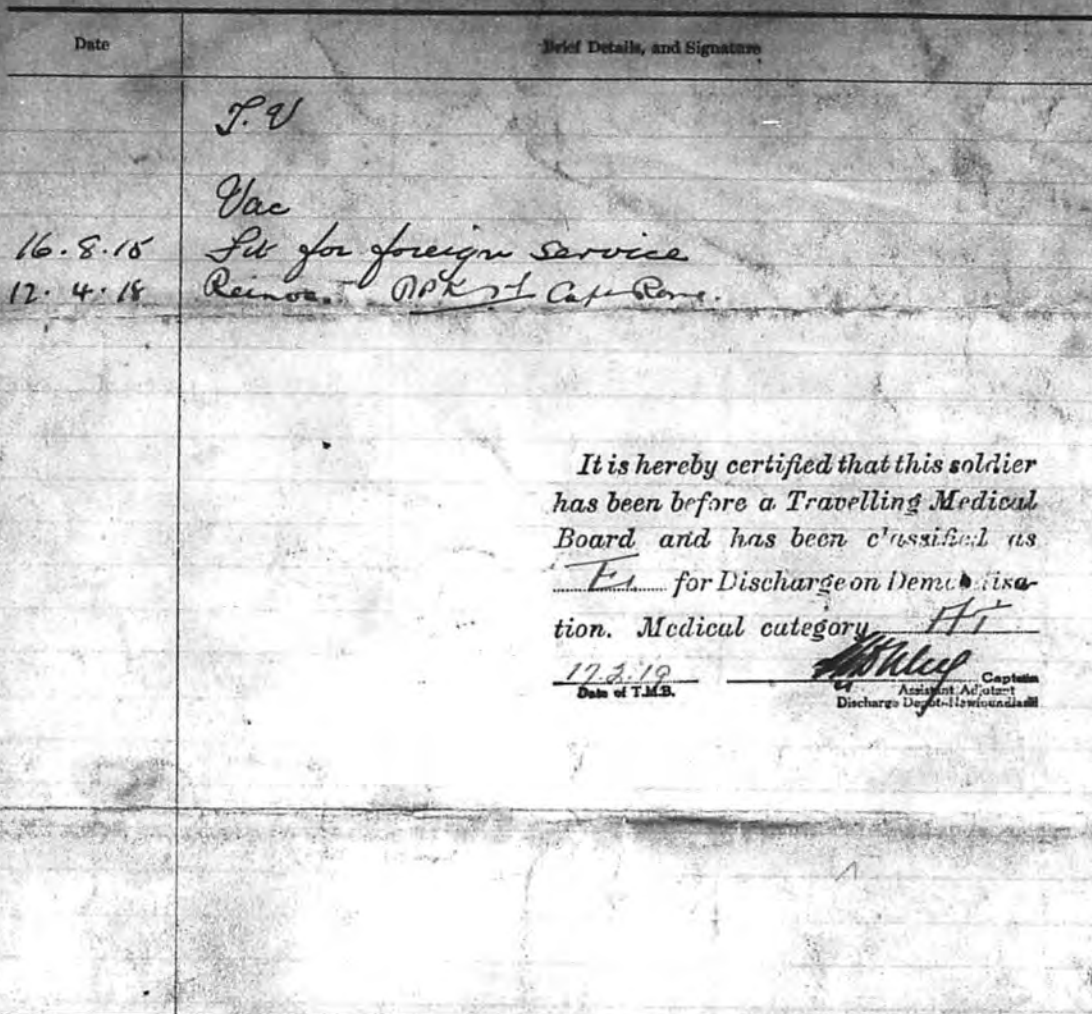 Date
Brief Details, and Signature
T.V
Vac
16.8.15 Fit for foreign service
12.4.18 Capt
It is hereby certified that this soldier
has been before a Travelling Medical
Board and has been classified as
for Discharge on Demobilisa-
tion. Medical category
17.2.19
Captain
Date of T.M.B.
Assistant Adjutant
Discharge Depot-Newfoundland